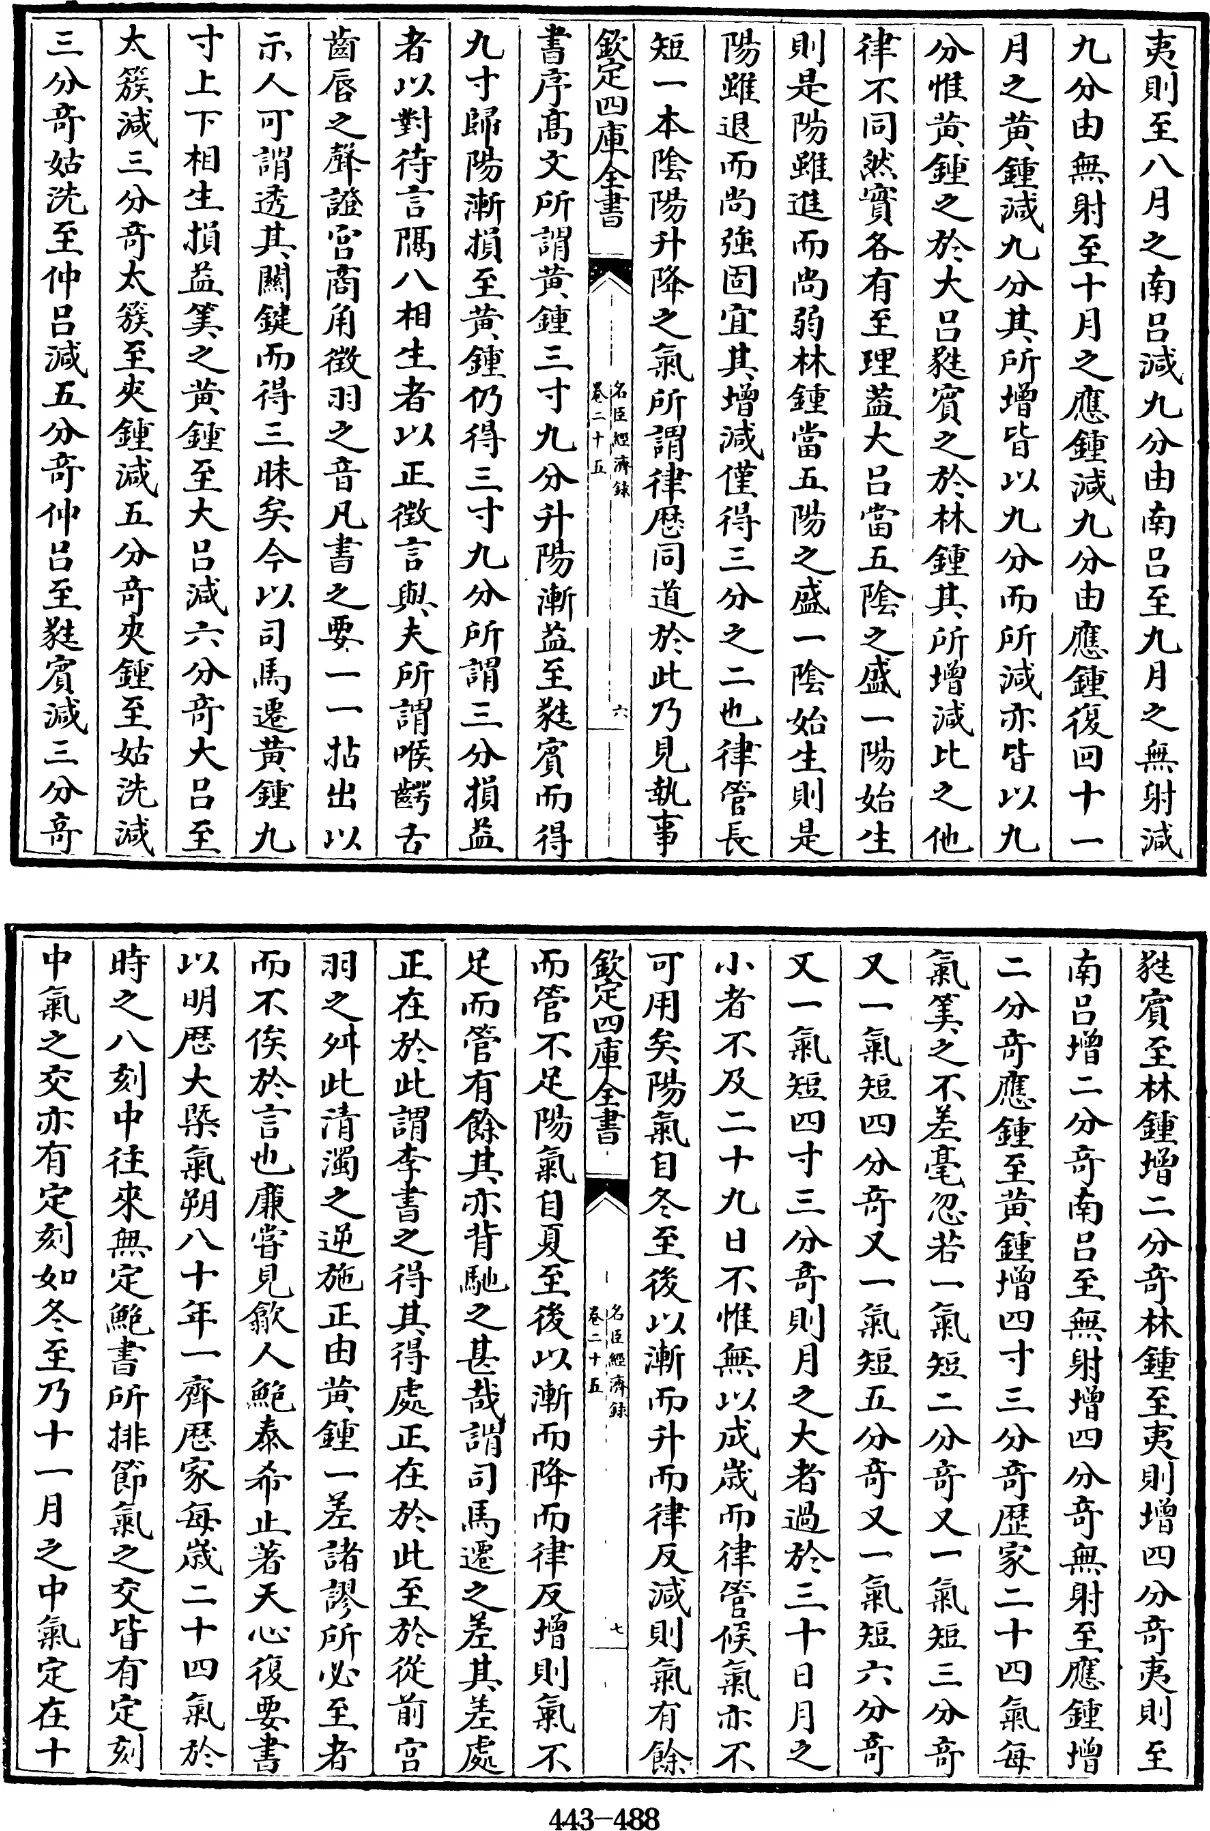 夷則至八月之南吕減九分由南吕至九月之無射減
九分由無射至十月之應鍾減九分由應鍾復回十一
月之黄鍾減九分其所增皆以九分而所減亦皆以九
分惟黄鍾之於大吕蕤賓之於林鍾其所增減比之他
律不同然實各有至理葢大吕當五陰之盛一陽始生
則是陽雖進而尚弱林鍾當五陽之盛一陰始生則是
陽雖退而尚強固宜其增減僅得三分之二也律管長
短一本陰陽升降之氣所謂律厯同道於此乃見執事
欽定四庫全書
名臣經濟録
卷二十五
六
書序髙文所謂黄鍾三寸九分升陽漸益至蕤賓而得
九寸歸陽漸損至黄鍾仍得三寸九分所謂三分損益
者以對待言隔八相生者以正徵言與夫所謂喉齶舌
齒唇之聲證宫商角徵羽之音凡書之要一一拈出以
示人可謂透其關鍵而得三昧矣今以司馬遷黄鍾九
寸上下相生損益筭之黄鍾至大吕減六分竒大吕至
太簇減三分竒太簇至夾鍾減五分竒夾鍾至姑洗減
三分竒姑洗至仲吕減五分竒仲吕至蕤賓減三分竒
蕤賓至林鍾增二分竒林鍾至夷則增四分竒夷則至
南吕增二分竒南吕至無射增四分竒無射至應鍾增
二分竒應鍾至黄鍾增四寸三分竒歴家二十四氣每
氣筭之不差毫忽若一氣短二分竒又一氣短三分竒
又一氣短四分竒又一氣短五分竒又一氣短六分竒
又一氣短四寸三分竒則月之大者過於三十日月之
小者不及二十九日不惟無以成歳而律管候氣亦不
可用矣陽氣自冬至後以漸而升而律反減則氣有餘
欽定四庫全書
名臣經濟録
卷二十五
七
而管不足陽氣自夏至後以漸而降而律反增則氣不
足而管有餘其亦背馳之甚哉謂司馬遷之差其差處
正在於此謂李書之得其得處正在於此至於從前宫
羽之舛此清濁之逆施正由黄鍾一差諸謬所必至者
而不俟於言也廉嘗見歙人鮑泰希止著天心復要書
以明厯大槩氣朔八十年一齊厯家每歳二十四氣於
時之八刻中往來無定鮑書所排節氣之交皆有定刻
中氣之交亦有定刻如冬至乃十一月之中氣定在十
443-488